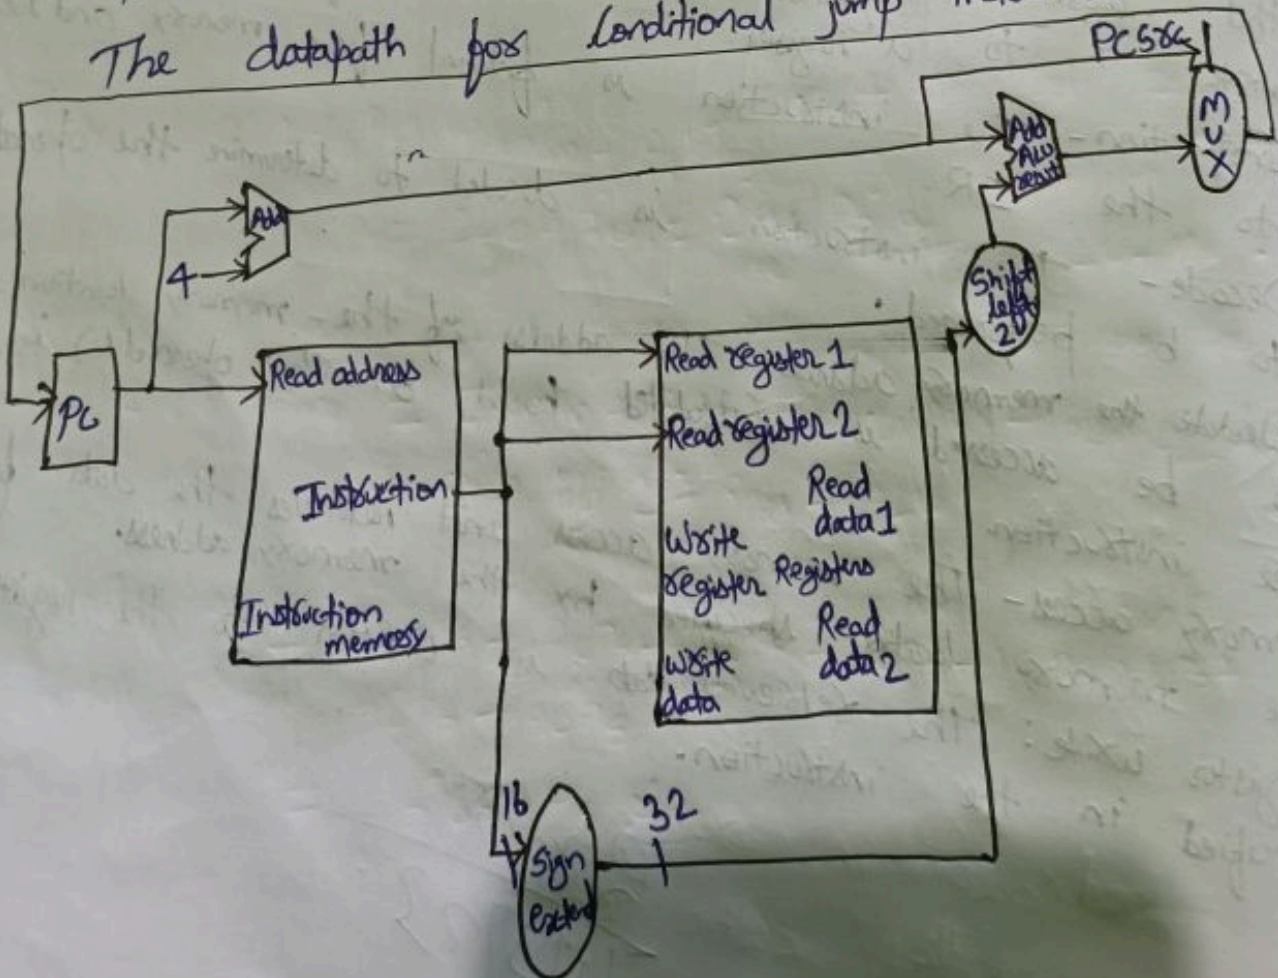 The datapath for Conditional jump
PCSrc
Add
ALU
result
MUX
Add
4
Shift
left
2
PC
Read address
Instruction
Instruction
memory
Read register 1
Read register 2
Read
data 1
Write
register Registers
Read
data 2
Write
data
16
32
Sign
extend